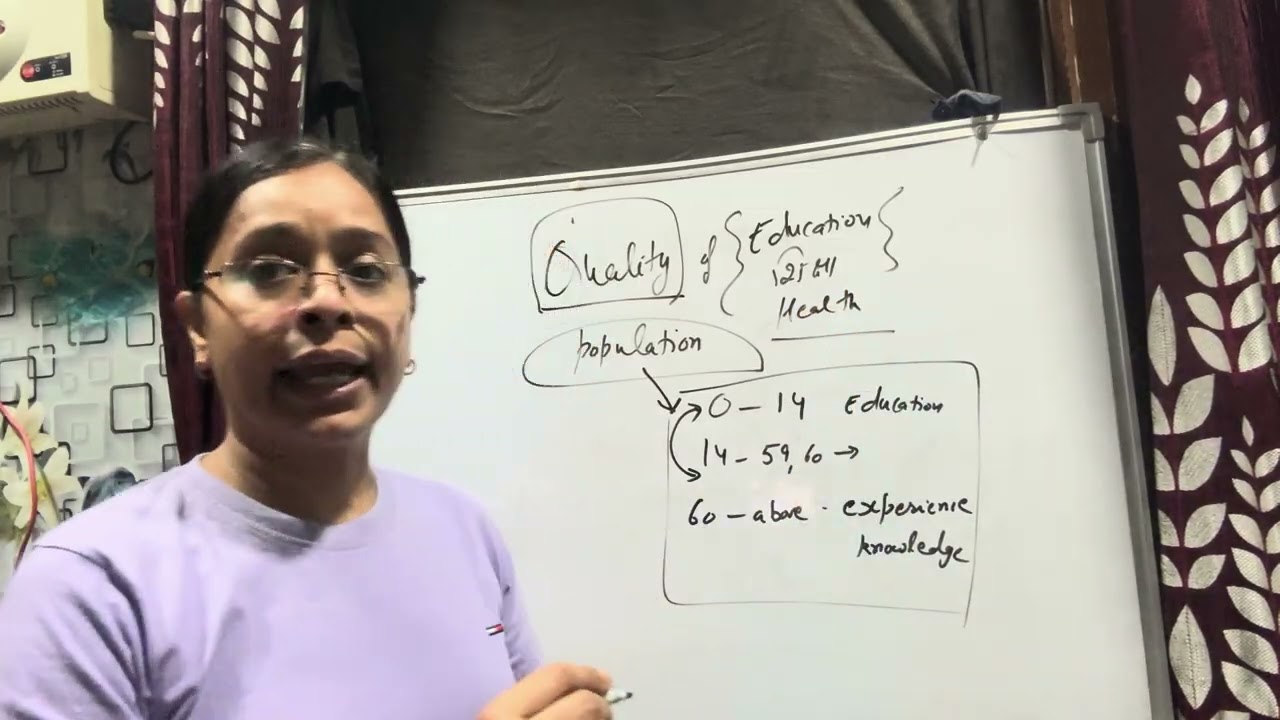 Quality of { Education }
Health
population
0 – 14 Education
14 – 59, 60 →
60 – above · experience
knowledge